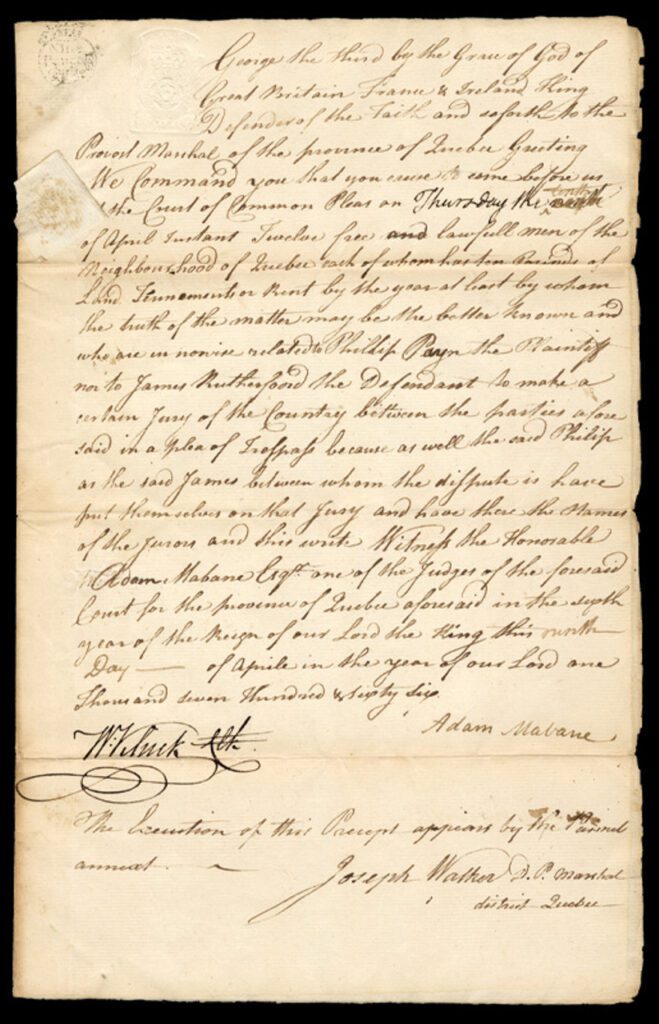 George the third by the Grace of God of
Great Britain France & Ireland King
Defender of the Faith and soforth to the
Provost Marshal of the province of Quebec Greeting
We Command you that you cause to come before us
at the Court of Common Pleas on Thursday the tenth
of April Instant Twelve free and lawfull men of the
Neighbourhood of Quebec each of whom has ten Pounds of
Land Tennements or Rent by the year at least by whom
the truth of the matter may be the better known and
who are in nowise related to Phillip Payn the Plaintiff
nor to James Rutherfoord the Defendant to make a
certain Jury of the Country between the parties afore
said in a plea of Trespass because as well the said Philip
as the said James between whom the dispute is have
put themselves on that Jury and have there the Names
of the Jurors and this write Witness the Honorable
Adam Mabane Esqr. one of the Judges of the foresaid
Court for the province of Quebec aforesaid in the sixth
year of the Reign of our Lord the King this ninth
Day — of Aprile in the year of our Lord one
Thousand seven Hundred & sixty six
Adam Mabane
The Execution of this Precept appears by the Pannel
annext.
Joseph Walker D. P. Marshal
district Quebec